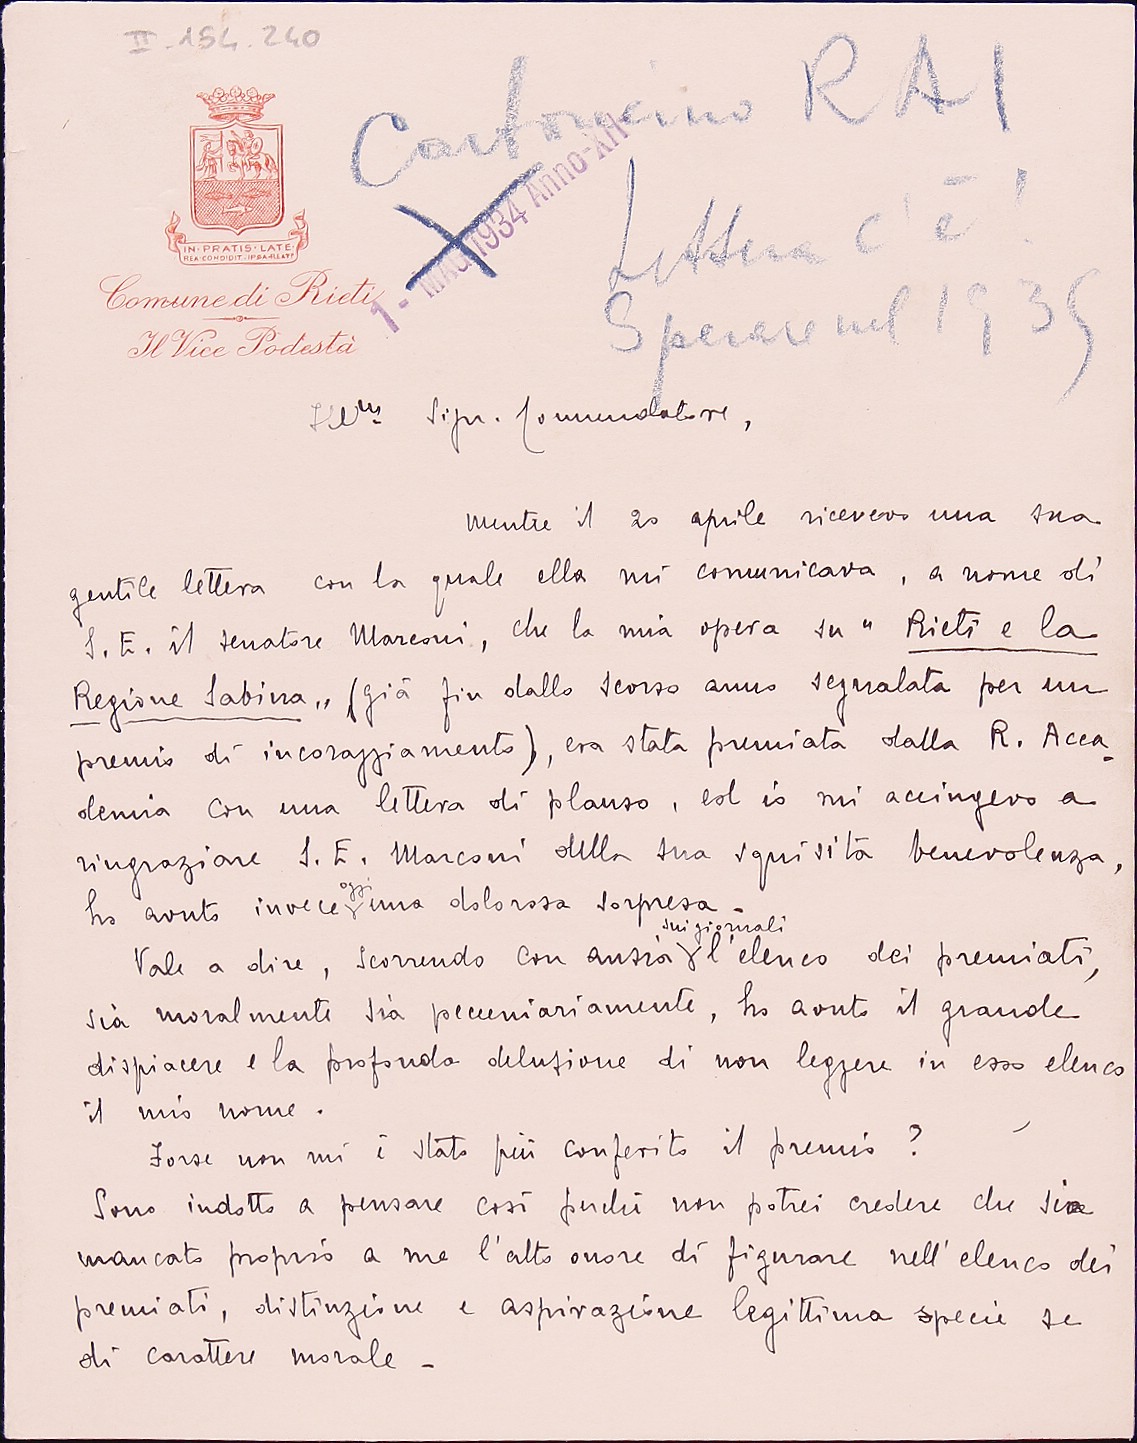 II. 154. 240
Cartoncino RAI
1 - MAG 1934 Anno-XII-
Lettera c'è!
Sperare nel 1935
IN·PRATIS·LATE·
REA·CONDIDIT·
Comune di Rieti
Il Vice Podestà
Ill.mo Sign. Commendatore,
mentre il 20 aprile ricevevo una sua
gentile lettera con la quale ella mi comunicava, a nome di
S. E. il senatore Marconi, che la mia opera su "Rieti e la
Regione Sabina„ (già fin dallo scorso anno segnalata per un
premio di incoraggiamento), era stata premiata dalla R. Acca-
demia con una lettera di plauso, ed io mi accingevo a
ringraziare S. E. Marconi della sua squisita benevolenza,
ho avuto invece oggi una dolorosa sorpresa -
Vale a dire, scorrendo con ansia sui giornali l'elenco dei premiati,
sia moralmente sia pecuniariamente, ho avuto il grande
dispiacere e la profonda delusione di non leggere in esso elenco
il mio nome.
Forse non mi è stato più conferito il premio?
Sono indotto a pensare così perchè non potrei credere che sia
mancato proprio a me l'alto onore di figurare nell'elenco dei
premiati, distinzione e aspirazione legittima specie se
di carattere morale -